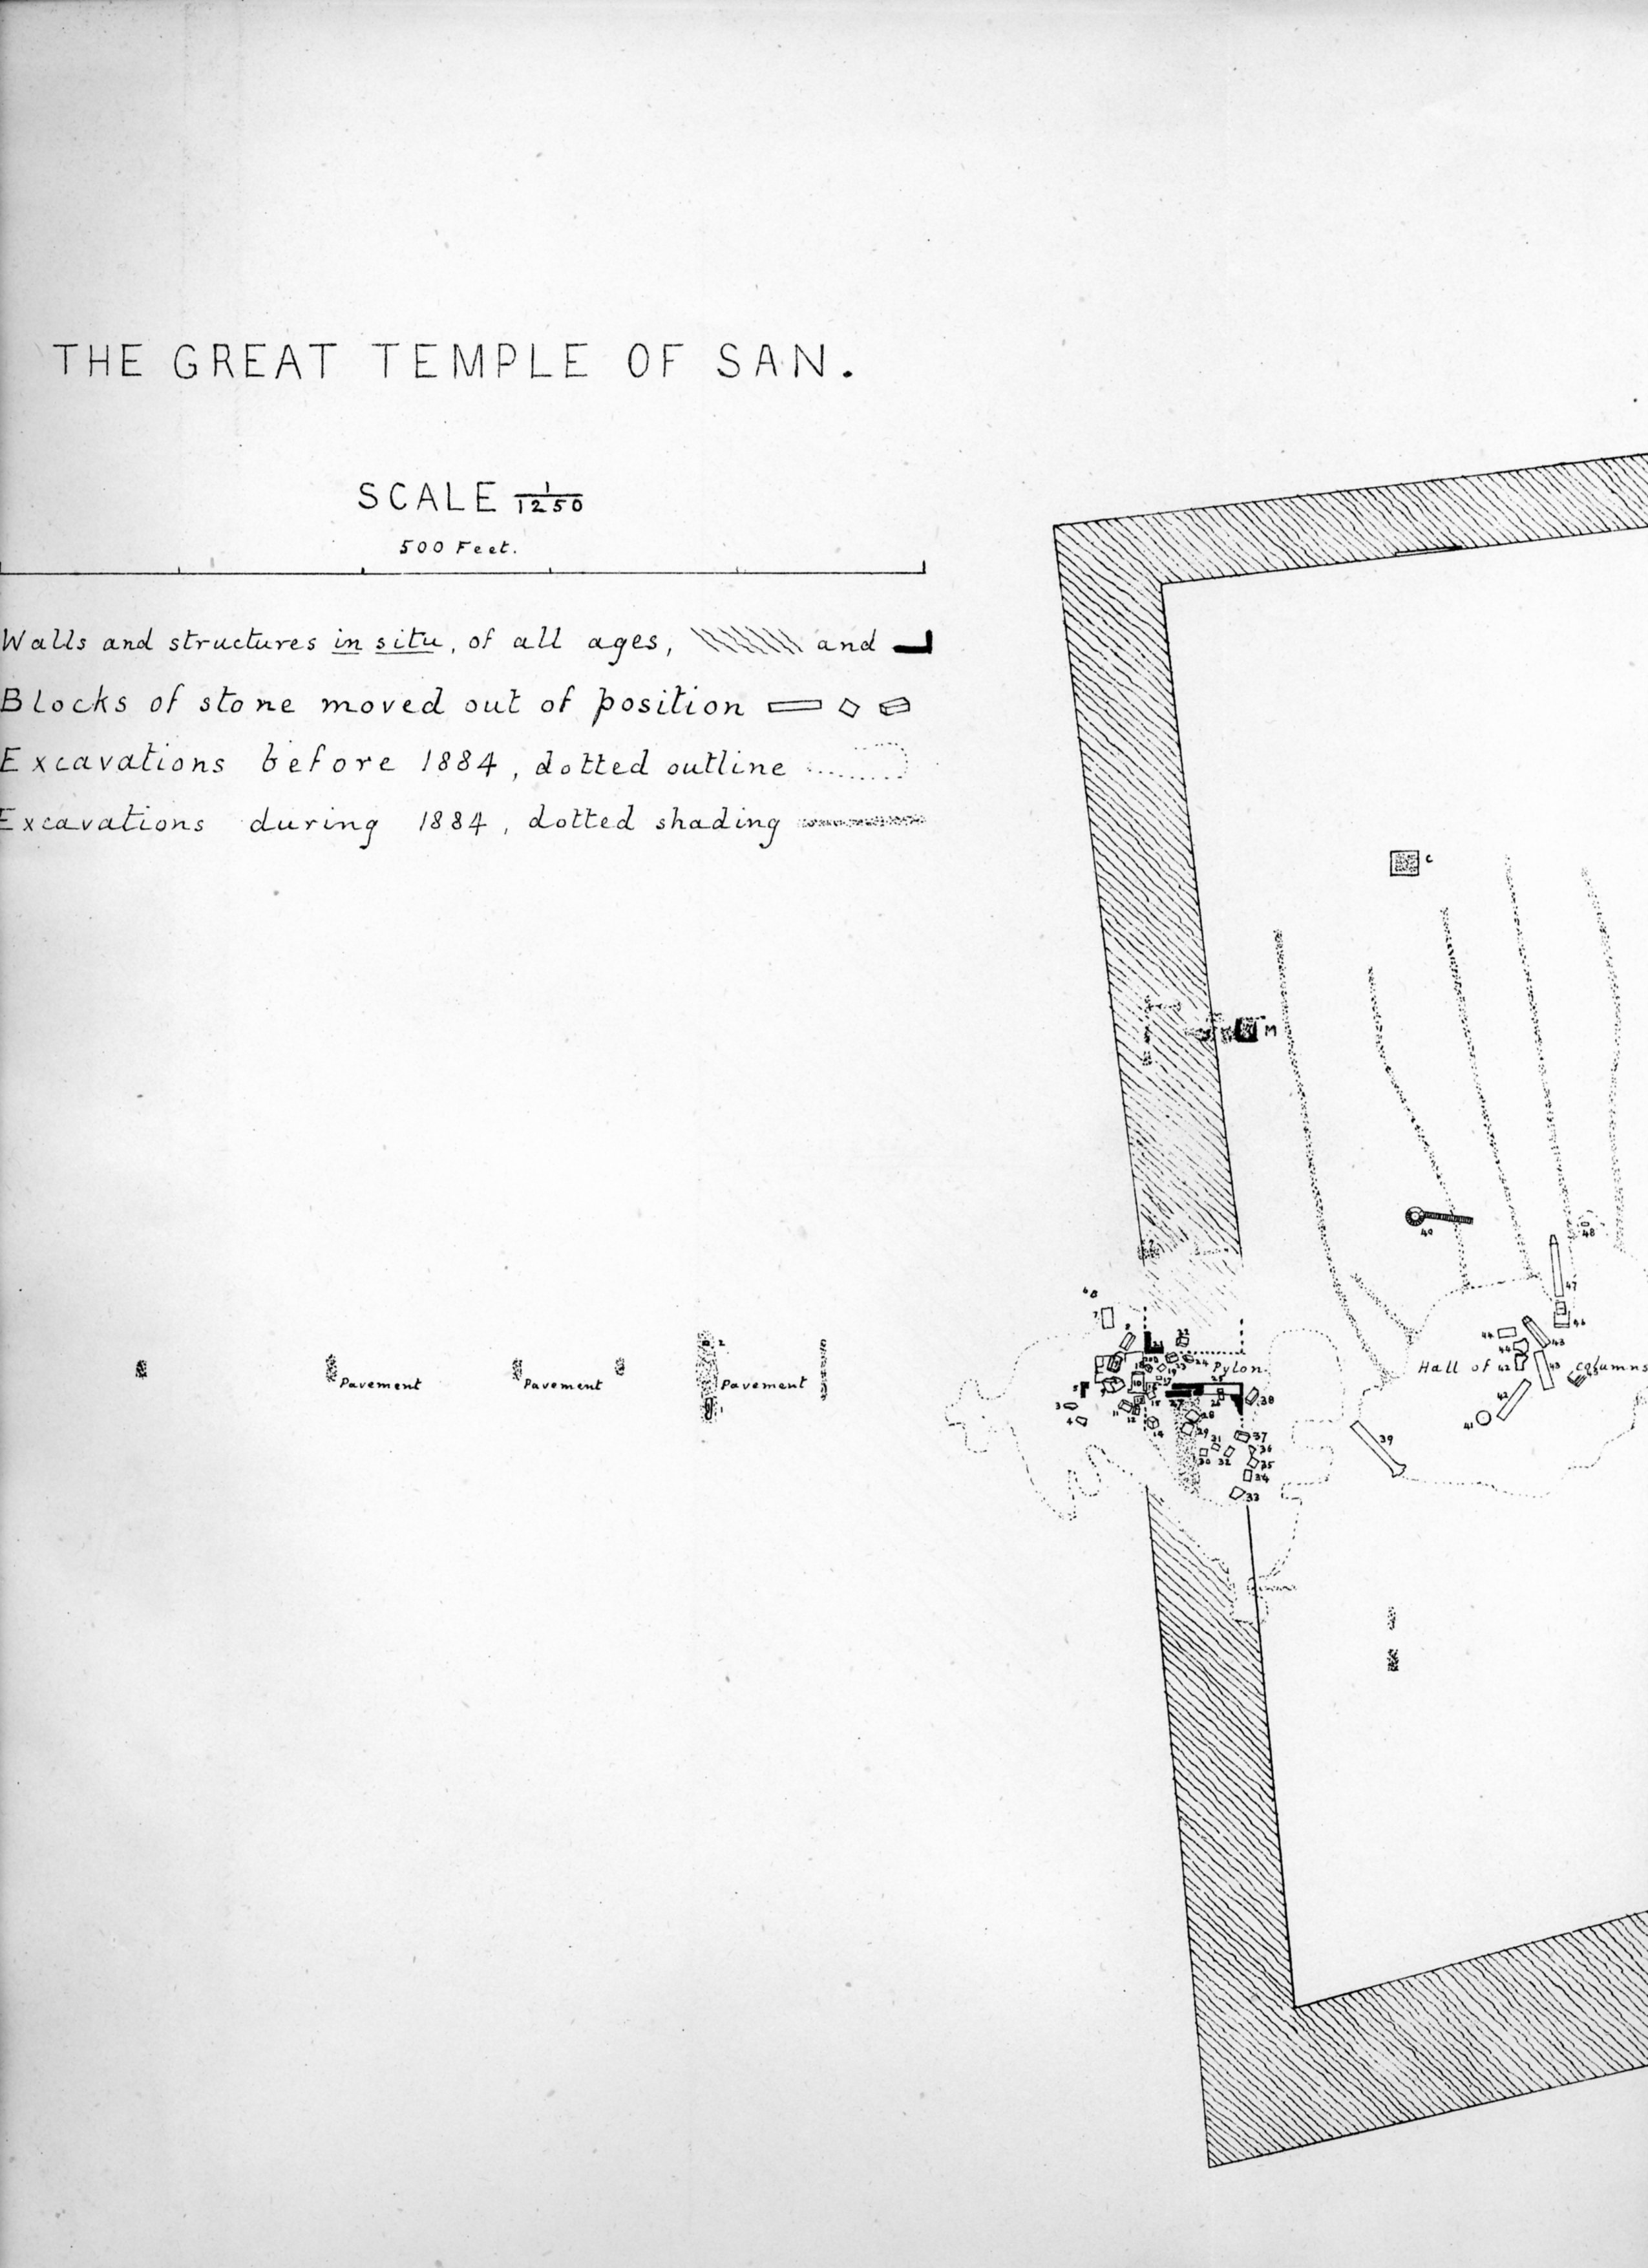 THE GREAT TEMPLE OF SAN.
SCALE 1/1250
500 Feet.
Walls and structures in situ, of all ages, and
Blocks of stone moved out of position
Excavations before 1884, dotted outline
Excavations during 1884, dotted shading
C
M
40
48
47
46
6
7
2
44
43
44
24
Pylon.
Hall of 42 43 columns
Pavement
Pavement
Pavement
38
3
4
42
41
1
11
12
14
28
29
31
37
39
36
30
32
35
34
33